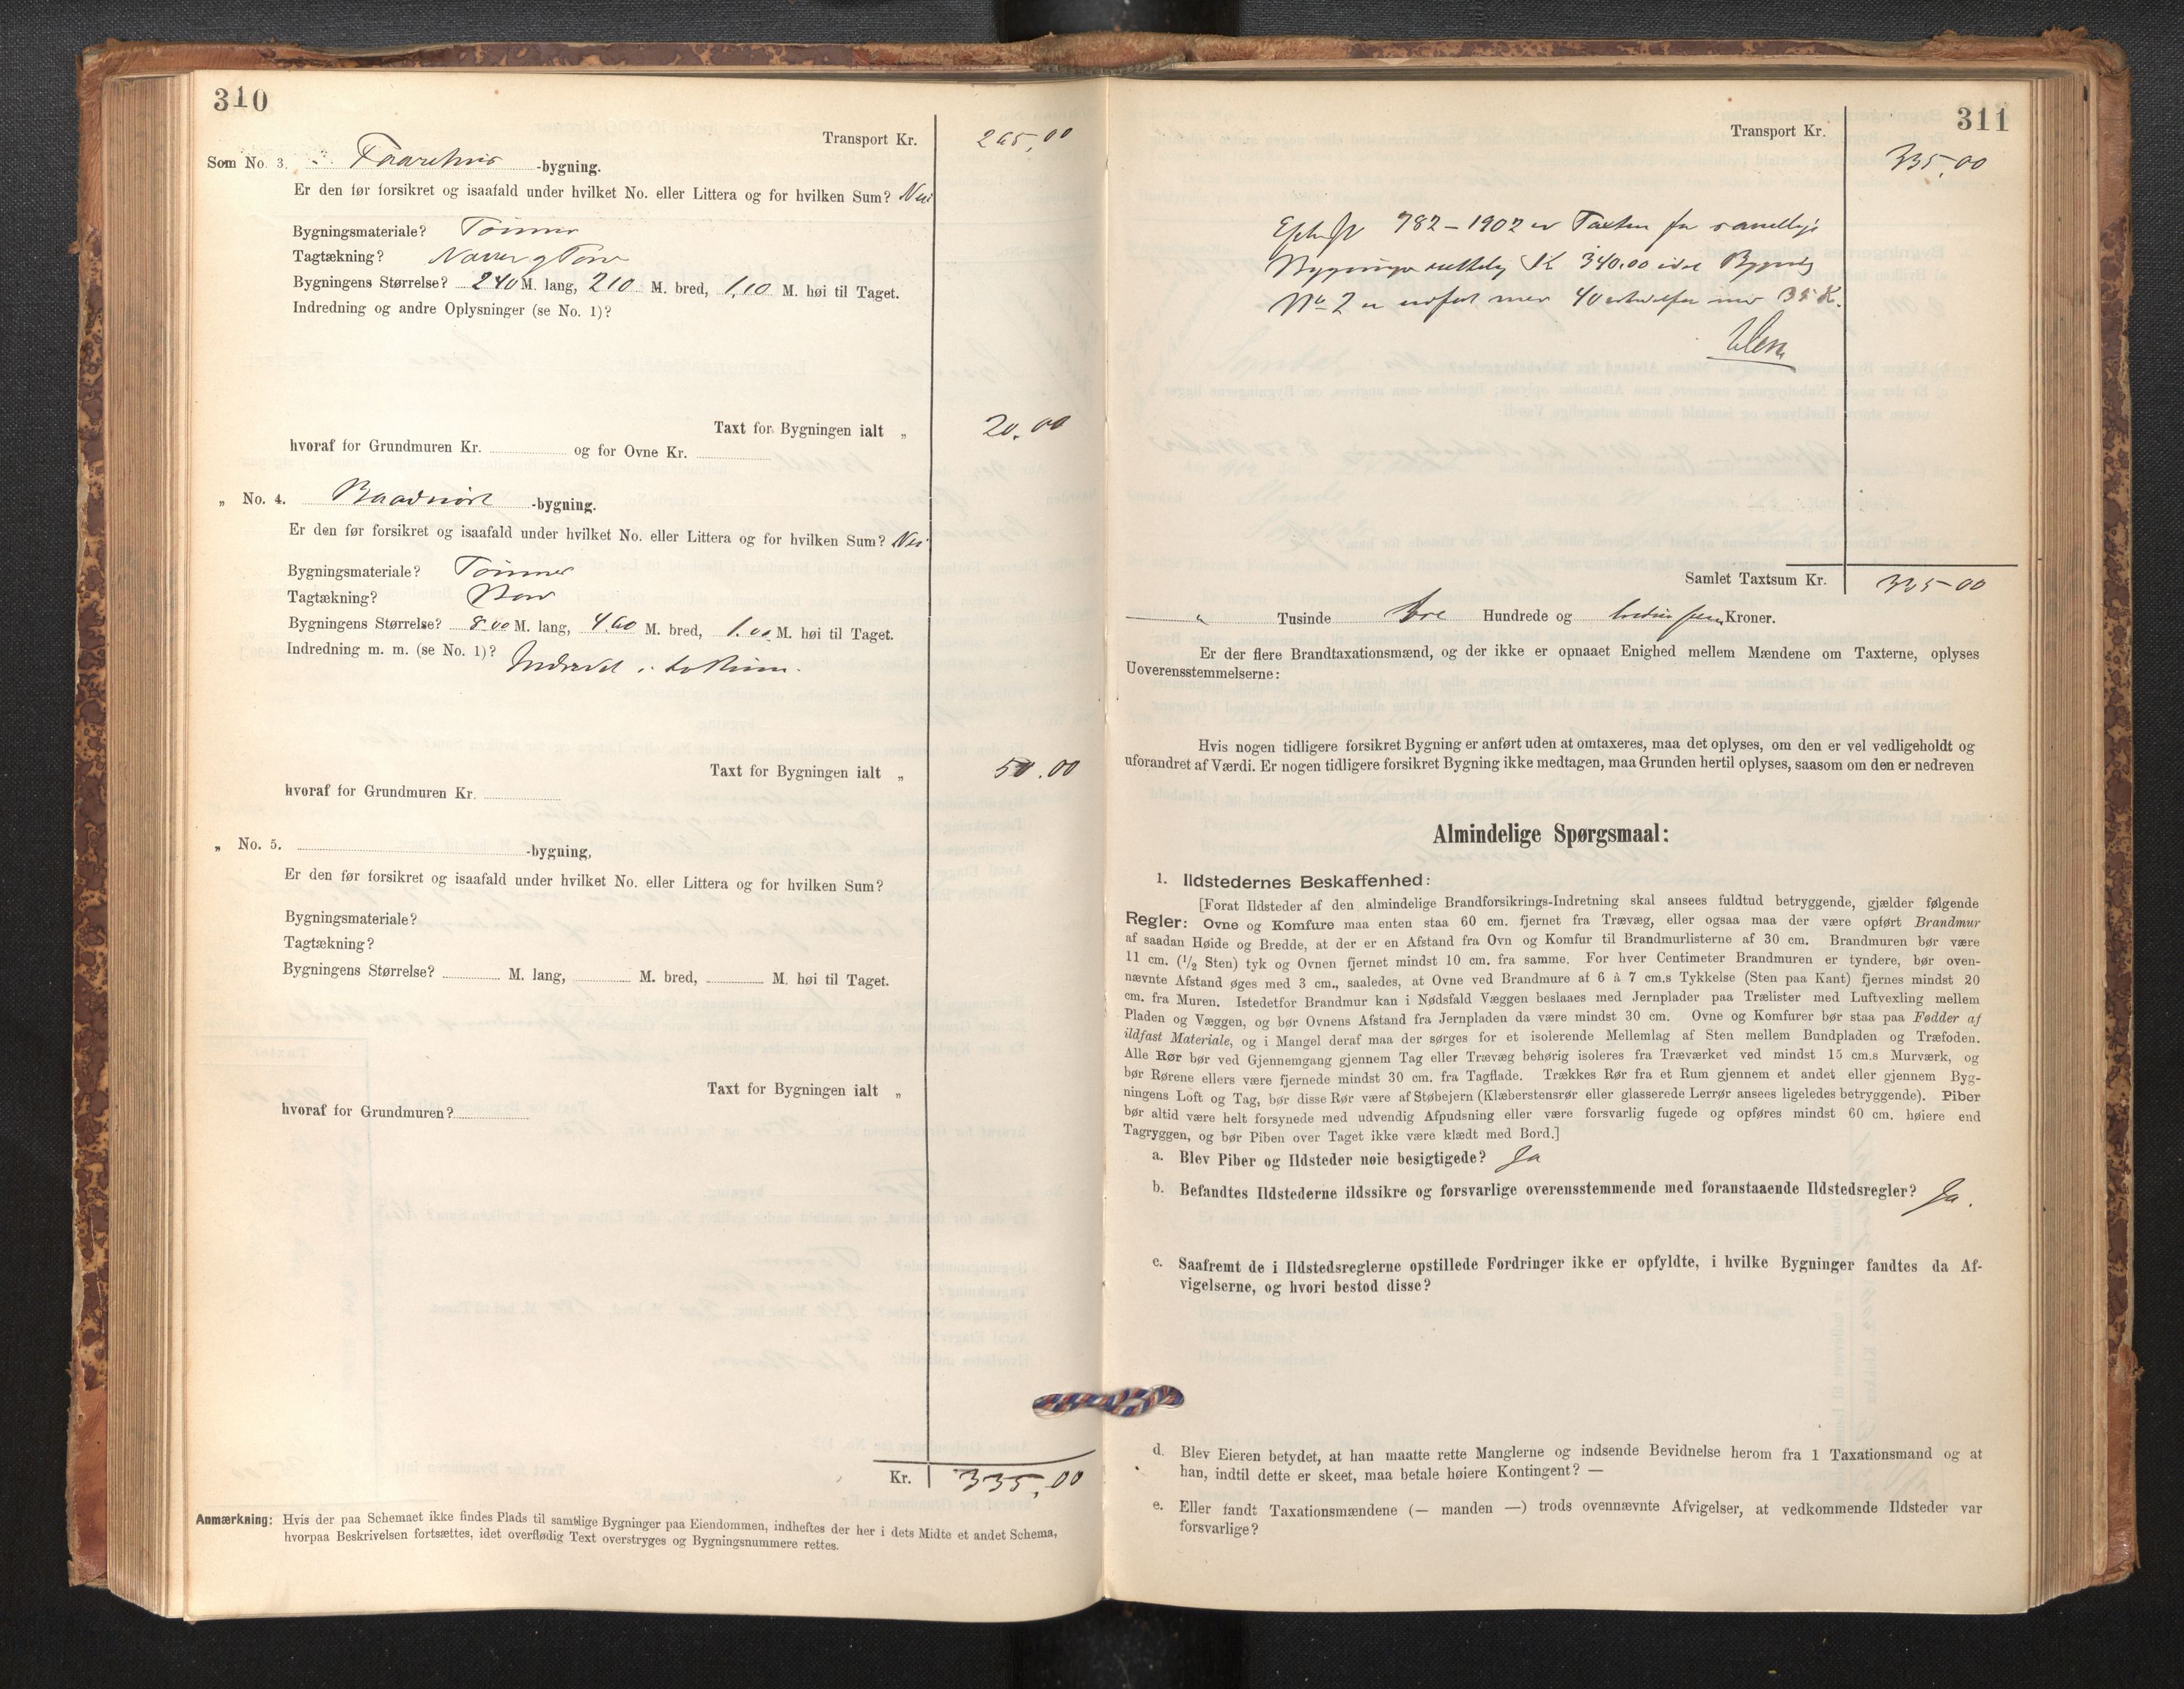 310
Transport Kr. 265,00
Som No. 3. Faarehus -bygning.
Er den før forsikret og isaafald under hvilket No. eller Littera og for hvilken Sum? Nei
Bygningsmateriale? Tømmer
Tagtækning? Næver og Torv
Bygningens Størrelse? 2 40 M. lang, 2 10 M. bred, 1,10 M. høi til Taget.
Indredning og andre Oplysninger (se No. 1)?
Taxt for Bygningen ialt „ 20.00
hvoraf for Grundmuren Kr. og for Ovne Kr.
„ No. 4. Baadnøst -bygning.
Er den før forsikret og isaafald under hvilket No. eller Littera og for hvilken Sum? Nei
Bygningsmateriale? Tømmer
Tagtækning?
Bygningens Størrelse? 8.00 M. lang, 4.60 M. bred, 1.00 M. høi til Taget.
Indredning m. m. (se No. 1)? Indredet i to Rum.
Taxt for Bygningen ialt „ 50.00
hvoraf for Grundmuren Kr.
„ No. 5. -bygning,
Er den før forsikret og isaafald under hvilket No. eller Littera og for hvilken Sum?
Bygningsmateriale?
Tagtækning?
Bygningens Størrelse? M. lang, M. bred, M. høi til Taget.
Taxt for Bygningen ialt „
hvoraf for Grundmuren?
Kr. 335,00
Anmærkning: Hvis der paa Schemaet ikke findes Plads til samtlige Bygninger paa Eiendommen, indheftes der her i dets Midte et andet Schema,
hvorpaa Beskrivelsen fortsættes, idet overflødig Text overstryges og Bygningsnummere rettes.
311
Transport Kr.
335,00
782 – 1902 er Taxten for samtlige
Bygninger K 340.00 idet Bygning
No 2 er opført med 40 istedetfor med 35 K.
Samlet Taxtsum Kr. 335 00
" Tusinde tre Hundrede og Kroner.
Er der flere Brandtaxationsmænd, og der ikke er opnaaet Enighed mellem Mændene om Taxterne, oplyses
Uoverensstemmelserne:
Hvis nogen tidligere forsikret Bygning er anført uden at omtaxeres, maa det oplyses, om den er vel vedligeholdt og
uforandret af Værdi. Er nogen tidligere forsikret Bygning ikke medtagen, maa Grunden hertil oplyses, saasom om den er nedreven
Almindelige Spørgsmaal:
1. Ildstedernes Beskaffenhed:
[Forat Ildsteder af den almindelige Brandforsikrings-Indretning skal ansees fuldtud betryggende, gjælder følgende
Regler: Ovne og Komfure maa enten staa 60 cm. fjernet fra Trævæg, eller ogsaa maa der være opført Brandmur
af saadan Høide og Bredde, at der er en Afstand fra Ovn og Komfur til Brandmurlisterne af 30 cm. Brandmuren bør være
11 cm. (1/2 Sten) tyk og Ovnen fjernet mindst 10 cm. fra samme. For hver Centimeter Brandmuren er tyndere, bør oven-
nævnte Afstand øges med 3 cm., saaledes, at Ovne ved Brandmure af 6 à 7 cm.s Tykkelse (Sten paa Kant) fjernes mindst 20
cm. fra Muren. Istedetfor Brandmur kan i Nødsfald Væggen beslaaes med Jernplader paa Trælister med Luftvexling mellem
Pladen og Væggen, og bør Ovnens Afstand fra Jernpladen da være mindst 30 cm. Ovne og Komfurer bør staa paa Fødder af
ildfast Materiale, og i Mangel deraf maa der sørges for et isolerende Mellemlag af Sten mellem Bundpladen og Træfoden.
Alle Rør bør ved Gjennemgang gjennem Tag eller Trævæg behørig isoleres fra Træværket ved mindst 15 cm.s Murværk, og
bør Rørene ellers være fjernede mindst 30 cm. fra Tagflade. Trækkes Rør fra et Rum gjennem et andet eller gjennem Byg-
ningens Loft og Tag, bør disse Rør være af Støbejern (Klæberstensrør eller glasserede Lerrør ansees ligeledes betryggende). Piber
bør altid være helt forsynede med udvendig Afpudsning eller være forsvarlig fugede og opføres mindst 60 cm. høiere end
Tagryggen, og bør Piben over Taget ikke være klædt med Bord.]
a. Blev Piber og Ildsteder nøie besigtigede? Ja
b. Befandtes Ildstederne ildssikre og forsvarlige overensstemmende med foranstaaende Ildstedsregler? Ja.
c. Saafremt de i Ildstedsreglerne opstillede Fordringer ikke er opfyldte, i hvilke Bygninger fandtes da Af-
vigelserne, og hvori bestod disse?
d. Blev Eieren betydet, at han maatte rette Manglerne og indsende Bevidnelse herom fra 1 Taxationsmand og at
han, indtil dette er skeet, maa betale høiere Kontingent? —
e. Eller fandt Taxationsmændene (— manden —) trods ovennævnte Afvigelser, at vedkommende Ildsteder var
forsvarlige?